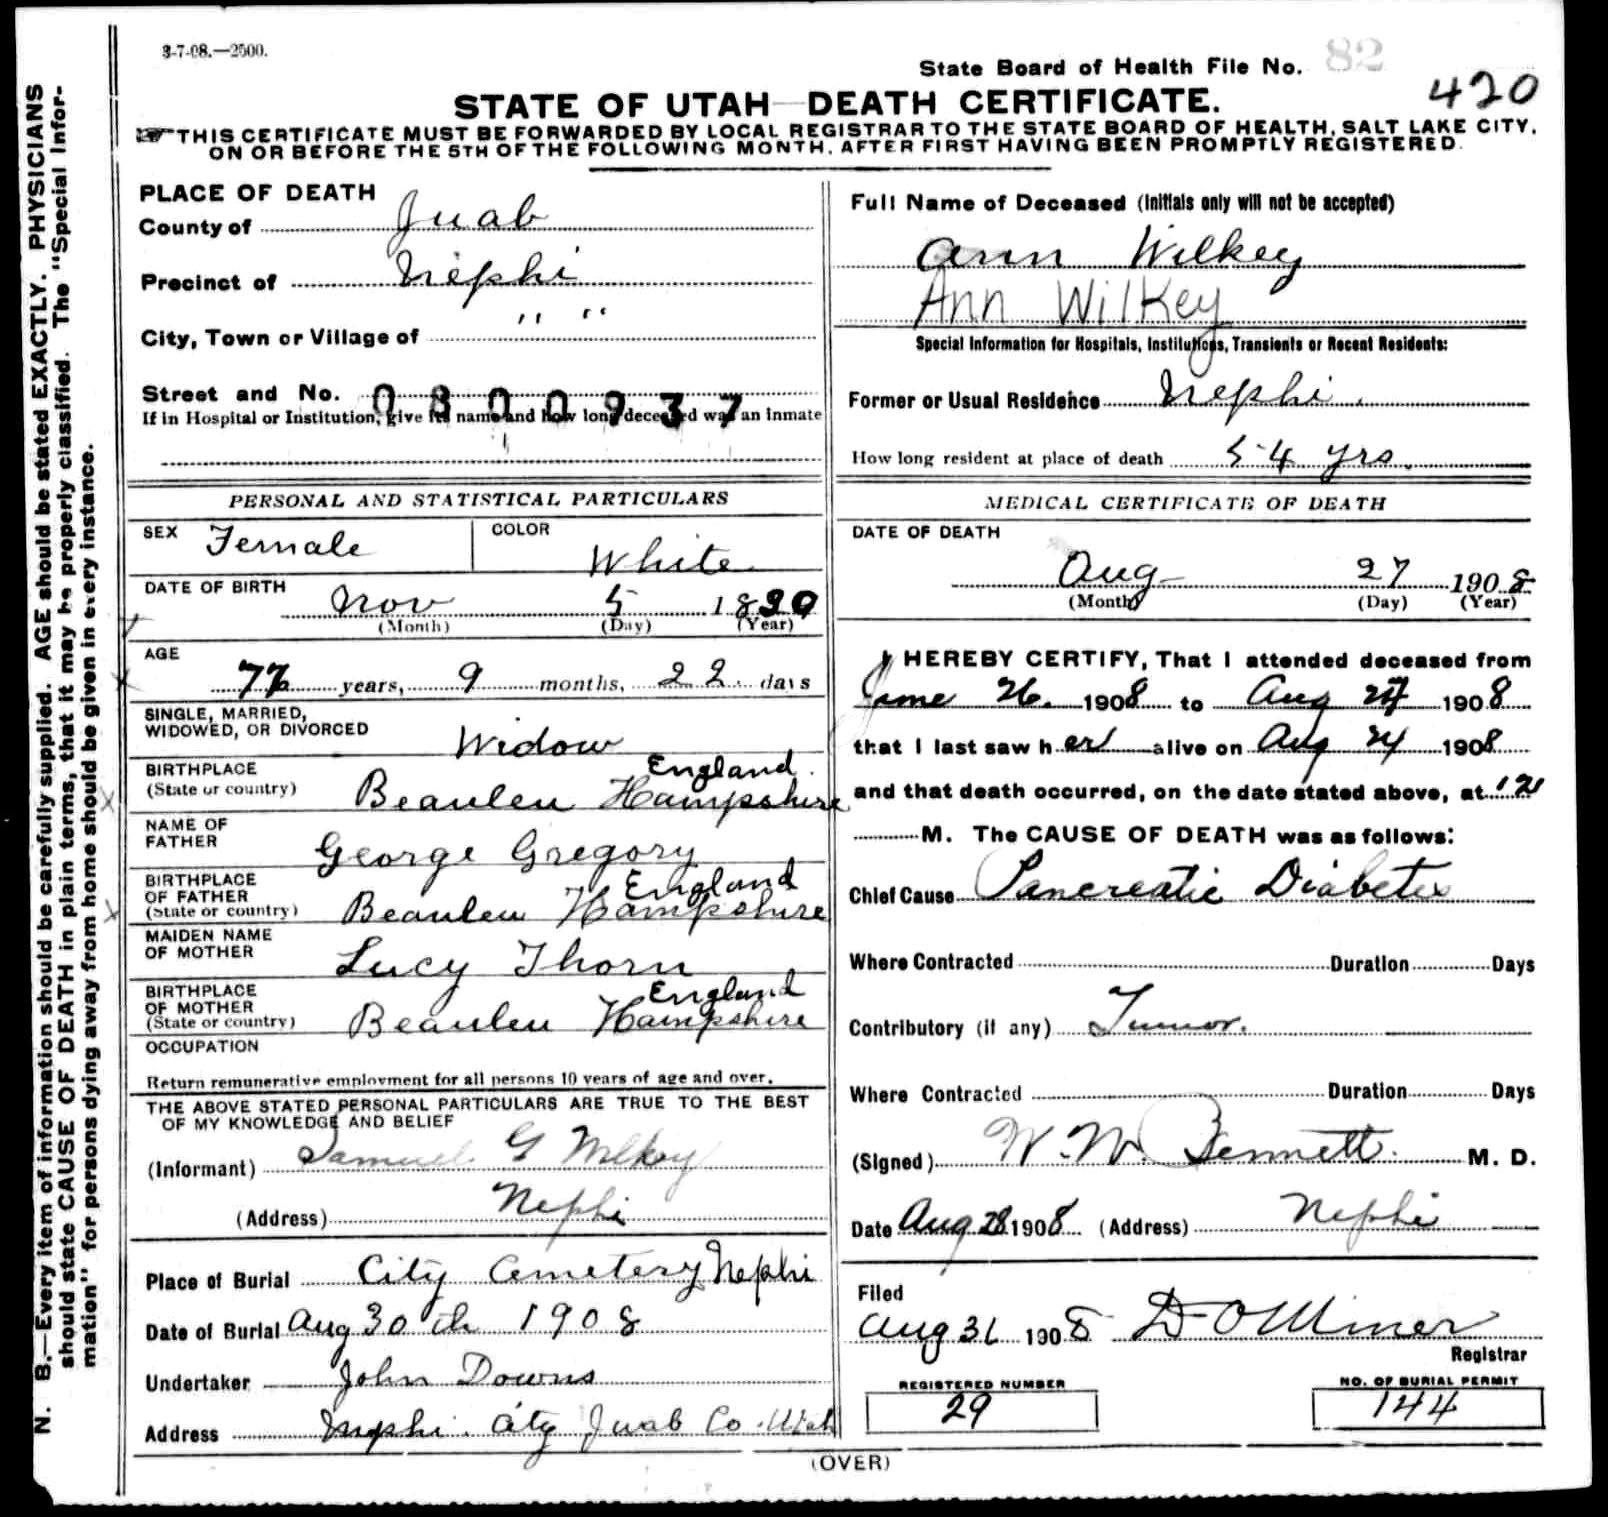 3-7-08.—2500.
State Board of Health File No. 82
420
STATE OF UTAH—DEATH CERTIFICATE.
THIS CERTIFICATE MUST BE FORWARDED BY LOCAL REGISTRAR TO THE STATE BOARD OF HEALTH, SALT LAKE CITY,
ON OR BEFORE THE 5TH OF THE FOLLOWING MONTH, AFTER FIRST HAVING BEEN PROMPTLY REGISTERED.
N. B.—Every item of information should be carefully supplied. AGE should be stated EXACTLY. PHYSICIANS
should state CAUSE OF DEATH in plain terms, that it may be properly classified. The "Special Infor-
mation" for persons dying away from home should be given in every instance.
PLACE OF DEATH
County of Juab
Precinct of Nephi
City, Town or Village of " "
Street and No.
0800937
If in Hospital or Institution, give its name and how long deceased was an inmate
PERSONAL AND STATISTICAL PARTICULARS
SEX Female COLOR White
DATE OF BIRTH Nov 5 18
(Month) (Day) (Year)
AGE
years, 9 months, 22 days
SINGLE, MARRIED,
WIDOWED, OR DIVORCED Widow
BIRTHPLACE England
(State or country) Beauleu Hampshire
NAME OF
FATHER George Gregory
BIRTHPLACE
OF FATHER England
(State or country) Beauleu Hampshire
MAIDEN NAME
OF MOTHER Lucy Thorn
BIRTHPLACE England
OF MOTHER
(State or country) Beauleu Hampshire
OCCUPATION
Return remunerative employment for all persons 10 years of age and over.
THE ABOVE STATED PERSONAL PARTICULARS ARE TRUE TO THE BEST
OF MY KNOWLEDGE AND BELIEF
(Informant) Samuel G Wilkey
(Address) Nephi
Place of Burial City Cemetery Nephi
Date of Burial Aug 30 th 1908
Undertaker John Downs
Address Nephi City Juab Co. Utah
Full Name of Deceased (Initials only will not be accepted)
Ann Wilkey
Ann Wilkey
Special Information for Hospitals, Institutions, Transients or Recent Residents:
Former or Usual Residence Nephi.
How long resident at place of death 54 yrs.
MEDICAL CERTIFICATE OF DEATH
DATE OF DEATH
Aug 27 1908
(Month) (Day) (Year)
I HEREBY CERTIFY, That I attended deceased from
June 26. 1908 to Aug 1908
that I last saw her alive on Aug 24 1908
and that death occurred, on the date stated above, at
M. The CAUSE OF DEATH was as follows:
Chief Cause Pancreatic Diabetes
Where Contracted Duration Days
Contributory (if any) Tumor.
Where Contracted Duration Days
(Signed) M. D.
Date Aug 28 1908 (Address) Nephi
Filed
Aug 31 1908 D O Miner
Registrar
REGISTERED NUMBER
29
NO. OF BURIAL PERMIT
144
(OVER)